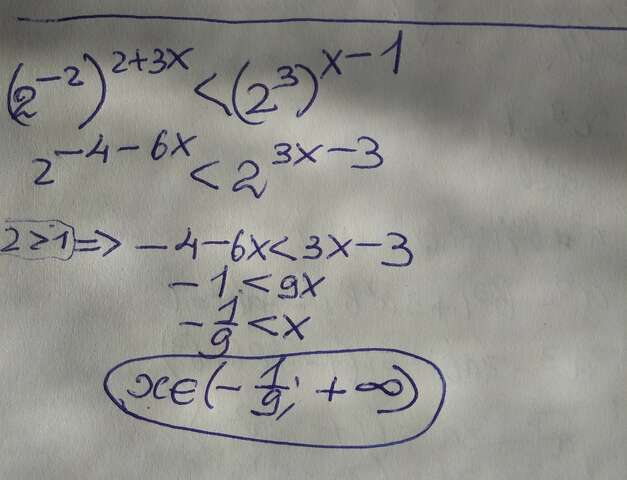 (2^{-2})^{2+3x} < (2^{3})^{x-1}
2^{-4-6x} < 2^{3x-3}
2>1 => -4-6x<3x-3
-1<9x
-1/9<x
x∈(-1/9; +∞)